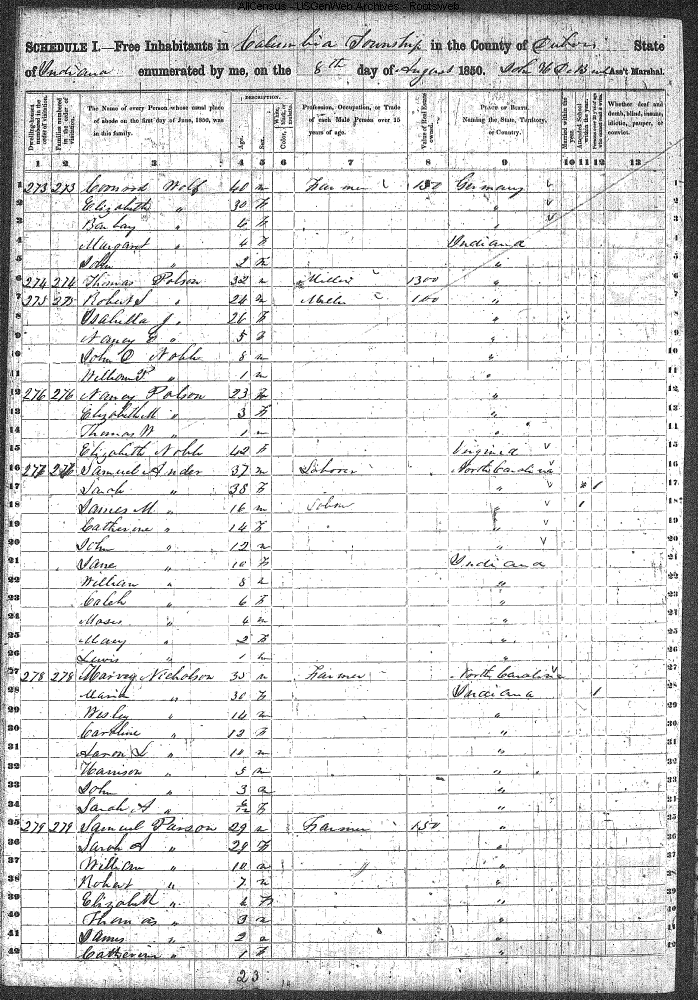 AllCensus - USGenWeb Archives - Rootsweb
SCHEDULE I.—Free Inhabitants in Columbia Township in the County of Dubois State
of Indiana enumerated by me, on the 8th day of August 1850. John Ass't Marshal.
Dwelling-houses numbered in the order of visitation.
Families numbered in the order of visitation.
The Name of every Person whose usual place of abode on the first day of June, 1850, was in this family.
DESCRIPTION.
Age.
Sex.
Color, White, black, or mulatto.
Profession, Occupation, or Trade of each Male Person over 15 years of age.
Value of Real Estate owned.
PLACE OF BIRTH. Naming the State, Territory, or Country.
Married within the year.
Attended School within the year.
Whether deaf and dumb, blind, insane, idiotic, pauper, or convict.
1 2 3 4 5 6 7 8 9 10 11 12 13
1 273 273 Conrod Wolf 40 m Farmer 150 Germany
2 Elizabeth " 30 F "
3 " F "
4 Margaret " 4 F Indiana
5 John " 2 m "
6 274 274 Thomas Polson 32 m Miller 1300 "
7 275 275 Robert S " 24 m 100 "
8 Isabella J. " 26 F "
9 Nancy E " 5 F "
10 John O Nobb 8 m "
11 William P " 1 m "
12 276 276 Nancy Polson 23 F "
13 Elizabeth M " 3 F "
14 Thomas W " 1 m "
15 Elizabeth Nobb 42 F Virginia
16 277 Samuel Ander 37 m Laborer North Carolina
17 Sarah " 38 F " 1
18 James M " 16 m Labor " 1
19 Catherine " 14 F "
20 John " 12 m "
21 Jane " 10 F Indiana
22 William " 8 m "
23 Caleb " 6 "
24 Moses " 4 m "
25 Mary " 2 F "
26 Lewis " 1 m "
27 278 278 Harvey Nicholson 35 m Farmer North Carolina
28 Maria " 30 F Indiana 1
29 Wesley " 14 m "
30 Caroline " 12 F "
31 Aaron L " 10 m "
32 Harrison " 5 m "
33 John " 3 m "
34 Sarah A " F "
35 279 279 Samuel Parson 29 m Farmer 150 "
36 Sarah " 29 F "
37 William " 10 m "
38 Robert " 7 m "
39 Elizabeth " 4 F "
40 Thomas " 3 m "
41 James " 2 m "
42 Catherine " 1 F "
23